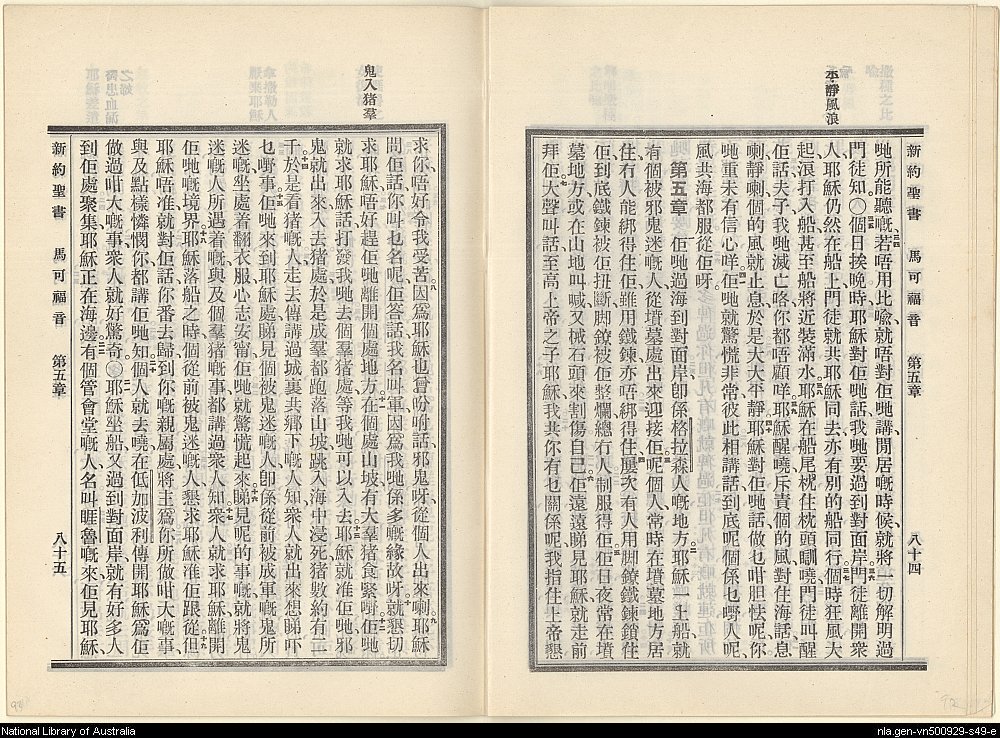 平靜風浪
新約聖書 馬可福音 第五章 八十四
哋所能聽嘅若唔用比喻就唔對佢哋講閒居嘅時候就將一切解明過
門徒知個日挨晚時耶穌對佢哋話我哋要過到對面岸門徒離開衆
人耶穌仍然在船上門徒就共耶穌同去亦有別的船同行個時狂風大
起浪打入船甚至船將近裝滿水耶穌在船尾枕住枕頭瞓嘵門徒叫醒
佢話夫子我哋滅亡咯你都唔顧咩耶穌醒嘵斥責個的風對住海話息
喇靜喇個的風就止息於是大大平靜耶穌對佢哋話做乜咁胆怯呢你
哋重未有信心咩佢哋就驚慌非常彼此相講話到底呢個係乜嘢人呢
風共海都服從佢呀
第五章 佢哋過海到對面岸卽係格拉森人嘅地方耶穌一上船就
有個被邪鬼迷嘅人從墳墓處出來迎接佢呢個人常時在墳墓地方居
住冇人能綁得住佢雖用鐵鍊亦唔綁得住屢次有人用脚鐐鐵鍊鎖住
佢到底鐵鍊被佢扭斷脚鐐被佢整爛總冇人制服得佢佢日夜常在墳
墓地方或在山地叫喊又械石頭來割傷自己佢遠遠睇見耶穌就走前
拜佢大聲叫話至高上帝之子耶穌我共你有乜關係呢我指住上帝懇
鬼入猪羣
求你唔好令我受苦因爲耶穌也曾吩咐話邪鬼呀從個人出來喇耶穌
問佢話你叫乜名呢佢答話我名叫軍因爲我哋係多嘅緣故呀就懇切
求耶穌唔好趕佢哋離開個處地方在個處山坡有大羣猪食緊嘢佢哋
就求耶穌話打發我哋去個羣猪處等我哋可以入去耶穌就准佢哋邪
鬼就出來入去猪處於是成羣都跑落山坡跳入海中浸死猪數約有二
千於是看猪嘅人走去傳講過城裏共鄉下嘅人知衆人就出來想睇吓
乜嘢事佢哋來到耶穌處睇見個被鬼迷嘅人卽係從前被成軍嘅鬼所
迷嘅坐處着翻衣服心志安甯佢哋就驚慌起來睇見呢的事嘅就將鬼
迷嘅人所遇着嘅與及個羣猪嘅事都講過衆人知衆人就求耶穌離開
佢哋嘅境界耶穌落船之時個從前被鬼迷嘅人懇求耶穌准佢跟從但
耶穌唔准就對佢話你番去歸到你嘅親屬處將主爲你所做咁大嘅事
與及點樣憐憫你都講佢哋知個人就去嘵在低加波利傳開耶穌爲佢
做過咁大嘅事衆人就好驚奇耶穌坐船又過到對面岸就有好多人
到佢處聚集耶穌正在海邊有個管會堂嘅人名叫睚魯嘅來佢見耶穌
新約聖書 馬可福音 第五章 八十五
National Library of Australia
nla.gen-vn500929-s49-e